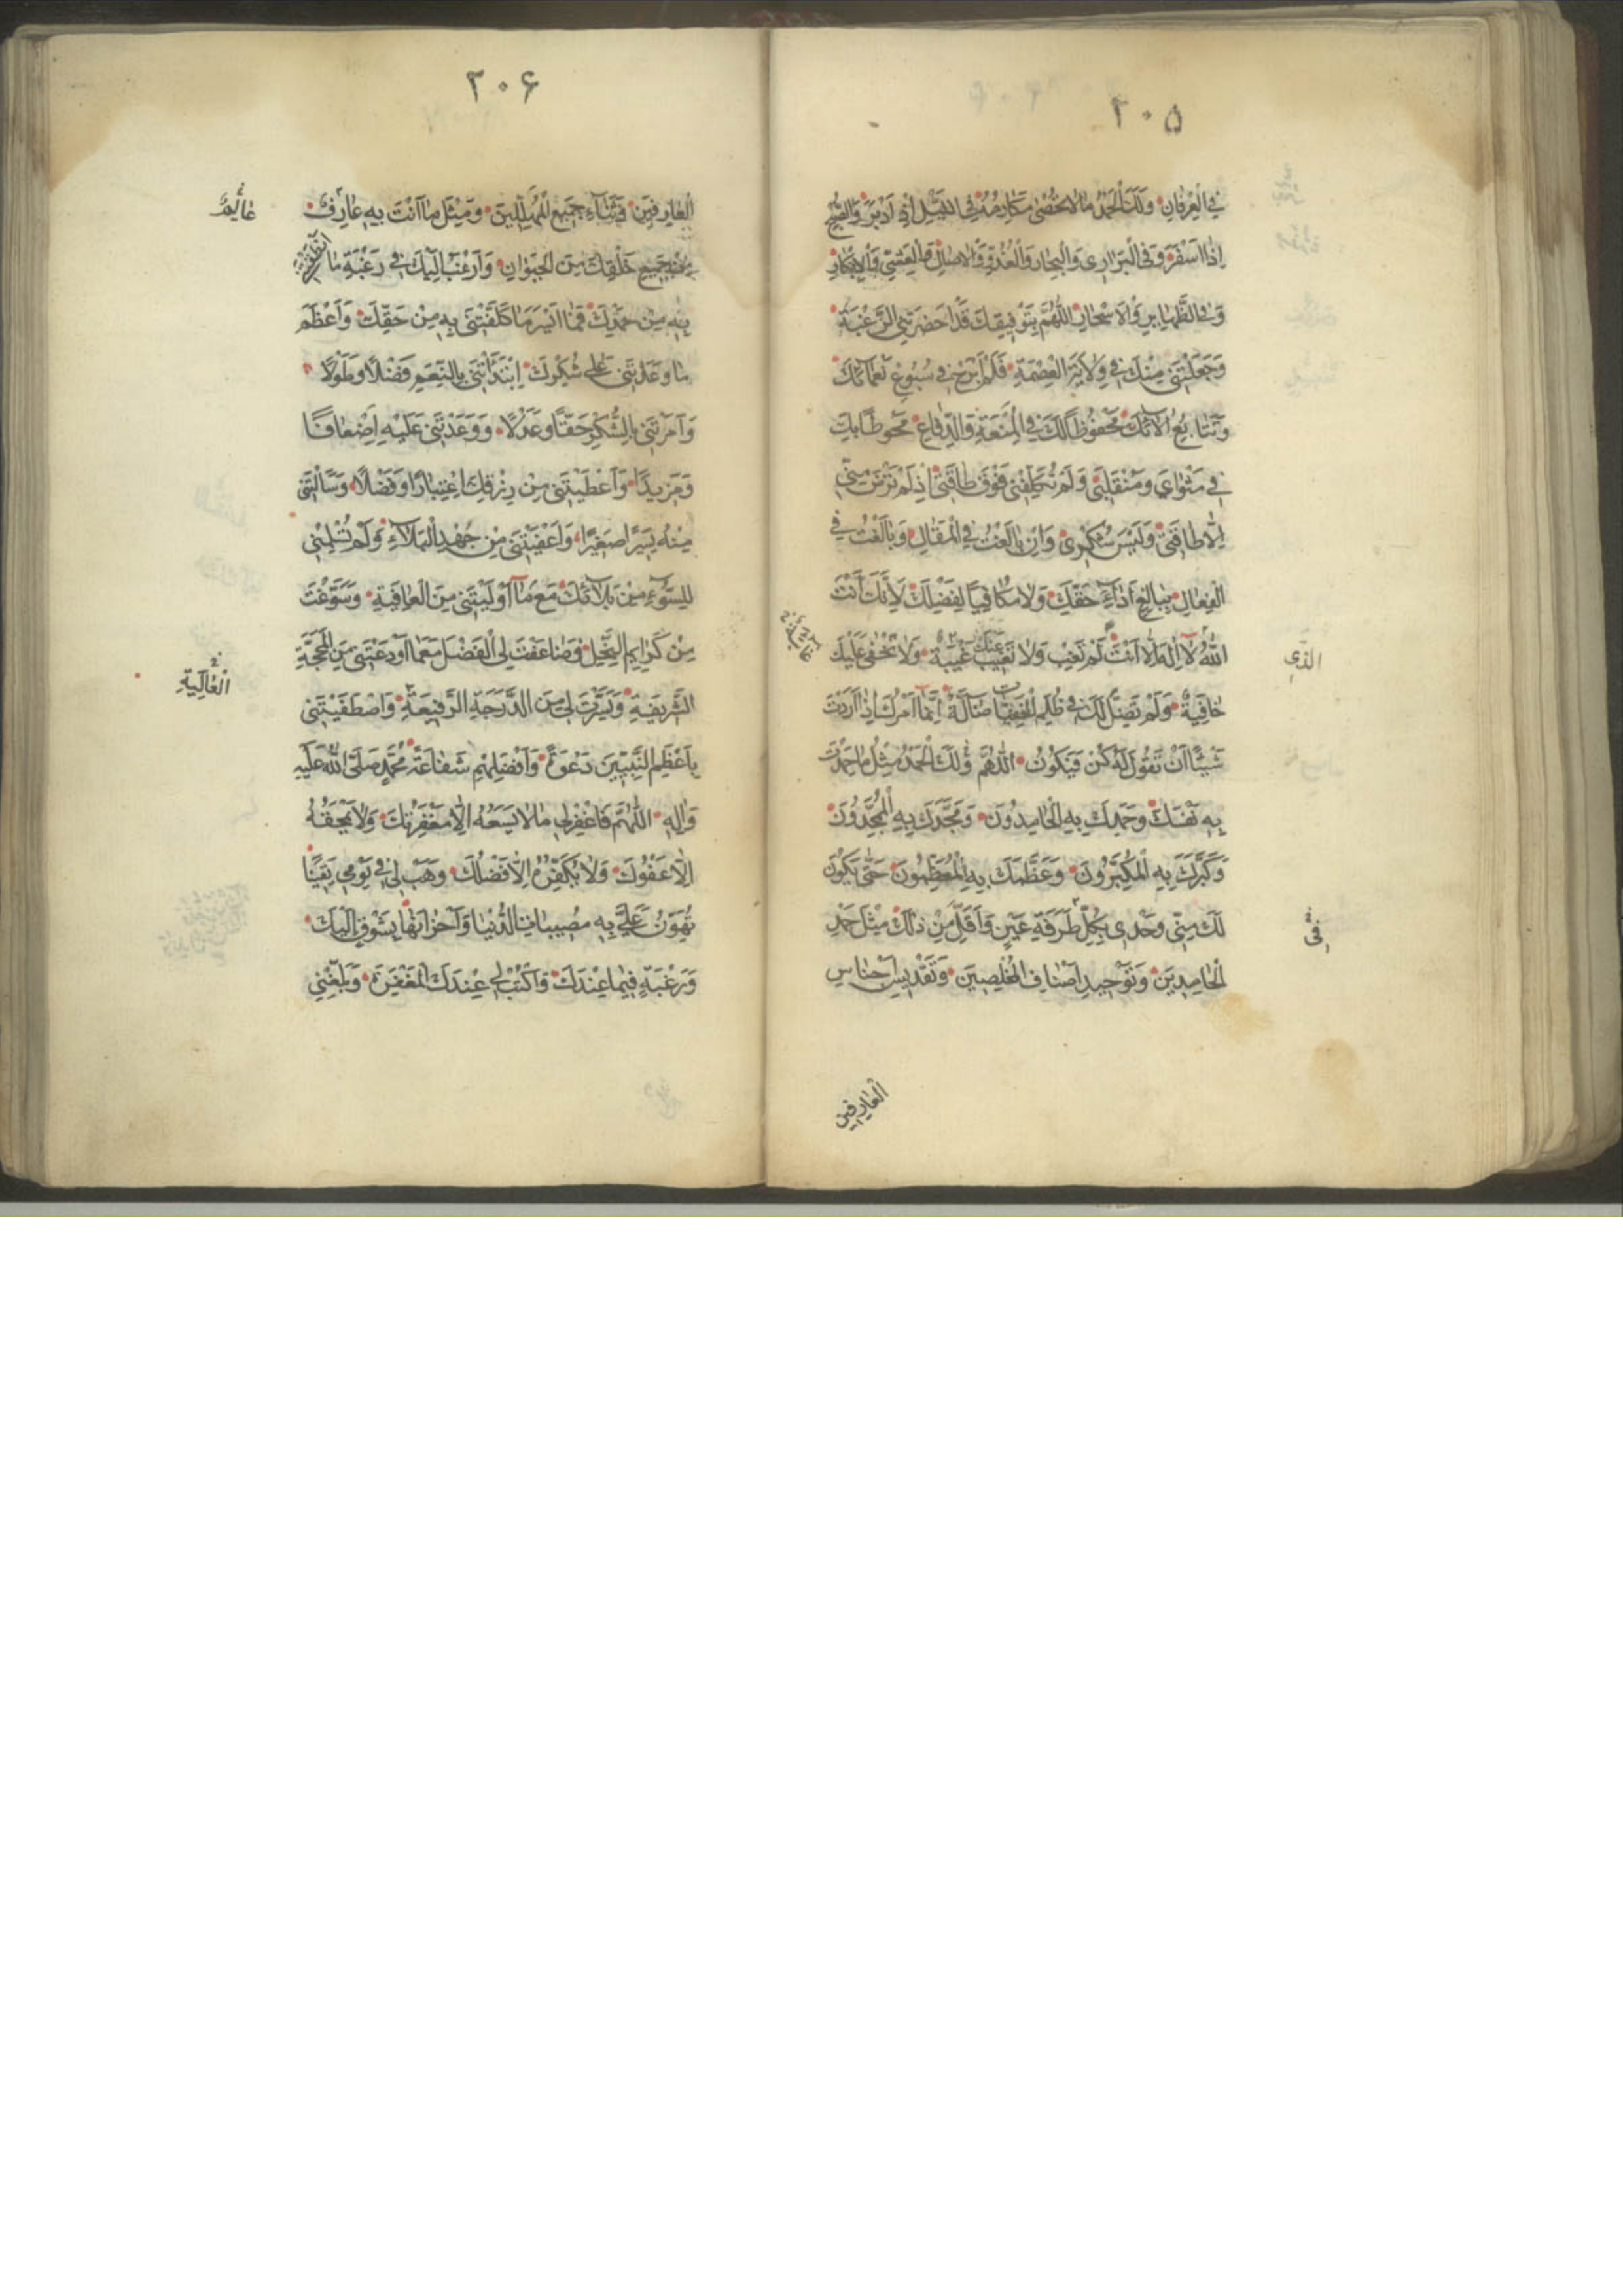 ۲۰۵
فِي الْعِرْفَانِ وَلَكَ الْحَمْدُ مَا لَا تُحْصٰى مَكَارِمُهُ فِي اللَّيْلِ اِذْ اَدْبَرَ وَالصُّبْحِ
اِذَا اَسْفَرَ وَفِي الْبَرَارِي وَالْبِحَارِ وَالْغُدُوِّ وَالْاٰصَالِ وَالْعَشِيِّ وَالْاِبْكَارِ
وَفِي الظَّهَايِرِ وَالْاَسْحَارِ اَللّٰهُمَّ بِتَوْفِيقِكَ قَدْ اَحْضَرْتَنِي الرَّغْبَةَ
وَجَعَلْتَنِي مِنْكَ فِي وِلَايَةِ الْعِصْمَةِ فَلَمْ اَبْرَحْ فِي سُبُوغِ نَعْمَآئِكَ
وَتَتَابُعِ اٰلَآئِكَ مَحْفُوظًا لَكَ فِي الْمَنَعَةِ وَالدِّفَاعِ مَحُوطًا بِكَ
فِي مَثْوَايَ وَمُنْقَلَبِي وَلَمْ تُكَلِّفْنِي فَوْقَ طَاقَتِي اِذْ لَمْ تَرْضَ مِنِّي
اِلَّا طَاقَتِي وَلَيْسَ شُكْرِي وَاِنْ بَالَغْتُ فِي الْمَقَالِ وَبَالَغْتُ فِي
الْفِعَالِ بِبَالِغِ اَدَآءِ حَقِّكَ وَلَا مُكَافِيًا لِفَضْلِكَ لِاَنَّكَ اَنْتَ
اللّٰهُ لَآ اِلٰهَ اِلَّا اَنْتَ لَمْ تَغِبْ وَلَا تَغِيبُ عَنْكَ غَيْبَةٌ وَلَا تَخْفٰى عَلَيْكَ
الَّذِي
غَائِبَةٌ
خَافِيَةٌ وَلَمْ تَضِلَّ لَكَ فِي ظُلَمِ الْخَفِيَّاتِ ضَآلَّةٌ اِنَّمَا اَمْرُكَ اِذَا اَرَدْتَ
شَيْئًا اَنْ تَقُولَ لَهُ كُنْ فَيَكُونُ اَللّٰهُمَّ وَلَكَ الْحَمْدُ مِثْلَ مَا حَمِدْتَ
بِهِ نَفْسَكَ وَحَمِدَكَ بِهِ الْحَامِدُونَ وَمَجَّدَكَ بِهِ الْمُمَجِّدُونَ
وَكَبَّرَكَ بِهِ الْمُكَبِّرُونَ وَعَظَّمَكَ بِهِ الْمُعَظِّمُونَ حَتّٰى يَكُونَ
لَكَ مِنِّي وَحْدِي بِكُلِّ طَرْفَةِ عَيْنٍ وَاَقَلَّ مِنْ ذٰلِكَ مِثْلَ حَمْدِ
فِي
الْحَامِدِينَ وَتَوْحِيدِ اَصْنَافِ الْمُخْلِصِينَ وَتَقْدِيسِ اَجْنَاسِ
الْعَارِفِينَ
۲۰۶
الْعَارِفِينَ وَثَنَآءِ جَمِيعِ الْمُهَلِّلِينَ وَمِثْلَ مَا اَنْتَ بِهِ عَارِفٌ
عَالِمٌ
مِنْ جَمِيعِ خَلْقِكَ مِنَ الْحَيَوَانِ وَاَرْغَبُ اِلَيْكَ فِي رَغْبَةِ مَا اَنْطَقْتَنِي
بِهِ مِنْ حَمْدِكَ فَمَا اَيْسَرَ مَا كَلَّفْتَنِي بِهِ مِنْ حَقِّكَ وَاَعْظَمَ
مَا وَعَدْتَنِي عَلٰى شُكْرِكَ اِبْتَدَأْتَنِي بِالنِّعَمِ فَضْلًا وَطَوْلًا
وَاَمَرْتَنِي بِالشُّكْرِ حَقًّا وَعَدْلًا وَوَعَدْتَنِي عَلَيْهِ اَضْعَافًا
وَمَزِيدًا وَاَعْطَيْتَنِي مِنْ رِزْقِكَ اِعْتِبَارًا وَفَضْلًا وَسَاَلْتَنِي
مِنْهُ يَسِيرًا صَغِيرًا وَاَعْفَيْتَنِي مِنْ جُهْدِ الْبَلَآءِ وَلَمْ تُسْلِمْنِي
لِلسُّوٓءِ مِنْ بَلَآئِكَ مَعَ مَا اَوْلَيْتَنِي مِنَ الْعَافِيَةِ وَسَوَّغْتَ
مِنْ كَرَايِمِ النَّحْلِ وَضَاعَفْتَ لِيَ الْفَضْلَ مَعَ مَا اَوْدَعْتَنِي مِنَ الْمَحَجَّةِ
الشَّرِيفَةِ وَيَسَّرْتَ لِي مِنَ الدَّرَجَةِ الرَّفِيعَةِ وَاصْطَفَيْتَنِي
الْعَالِيَةِ
بِاَعْظَمِ النَّبِيِّينَ دَعْوَةً وَاَفْضَلِهِمْ شَفَاعَةً مُحَمَّدٍ صَلَّى اللّٰهُ عَلَيْهِ
وَاٰلِهِ اَللّٰهُمَّ فَاغْفِرْ لِي مَا لَا يَسَعُهُ اِلَّا مَغْفِرَتُكَ وَلَا يَمْحَقُهُ
اِلَّا عَفْوُكَ وَلَا يُكَفِّرُهُ اِلَّا فَضْلُكَ وَهَبْ لِي فِي يَوْمِي يَقِينًا
تُهَوِّنُ عَلَيَّ بِهِ مُصِيبَاتِ الدُّنْيَا وَاَحْزَانَهَا بِشَوْقٍ اِلَيْكَ
وَرَغْبَةٍ فِيمَا عِنْدَكَ وَاكْتُبْ لِي عِنْدَكَ الْمَغْفِرَةَ وَبَلِّغْنِي